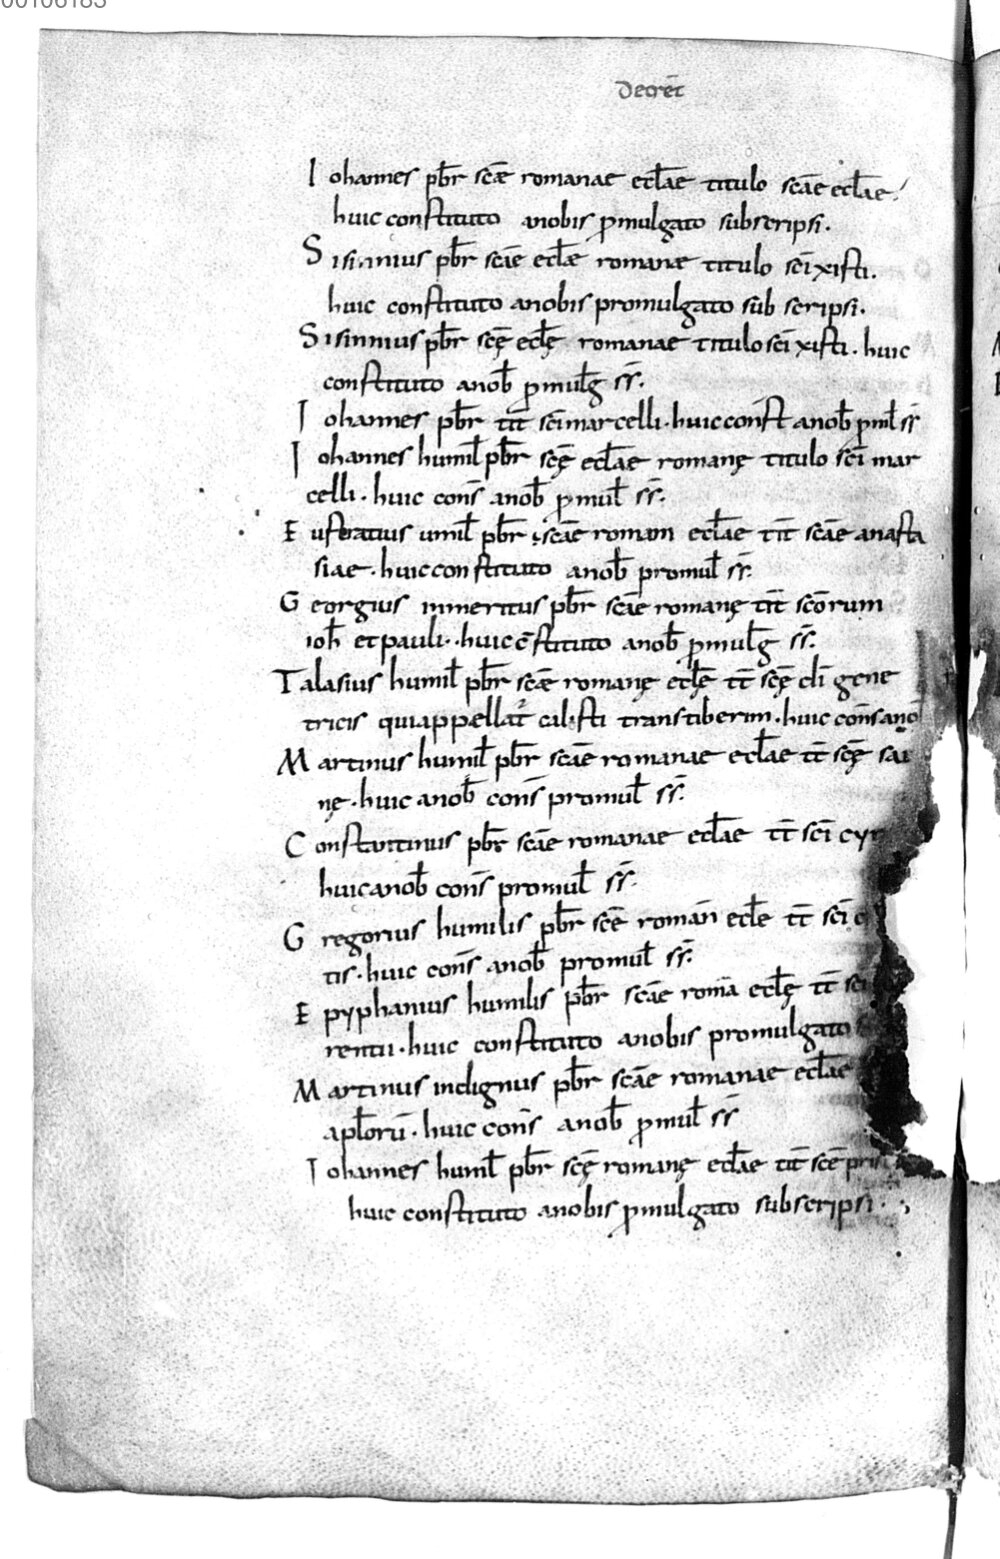 00106183
decret̄
Iohannes pb̄r scāe romanae ecl̄ae titulo scāe ecl̄ae.
huic constituto anobis ꝓmulgato subscripsi.
Sisinnius pb̄r scāe ecl̄ae romanae titulo scī xisti.
huic constituto anobis promulgato sub scripsi.
Sisinnius pb̄r scę̄ ecl̄ę romanae titulo scī xisti. huic
constituto anob̄ ꝓmulḡ ss̄.
Iohannes pb̄r tit̄ scī marcelli. huic const̄ anob̄ ꝓml̄ ss̄
Iohannes humil̄ pb̄r scę̄ ecl̄ae romanę titulo scī mar
celli. huic cons̄ anob̄ ꝓmul̄ ss̄.
Eustratius umil̄ pb̄r scāe roman ecl̄ae tit̄ scāe anasta
siae. huic constituto anob̄ promul̄ ss̄.
Georgius inmeritus pb̄r scāe romanę tit̄ scōrum
ioh̄ et pauli. huic c̄stituto anob̄ ꝓmulḡ ss̄.
Talasius humil̄ pb̄r scāe romanę ecl̄ę tt̄ scę̄ dī gene
tricis qui appellat̄ calisti transtiberim. huic cons̄ ano
Martinus humil̄ pb̄r scāe romanae ecl̄ae tt̄ scę̄ sa
nę. huic anob̄ cons̄ promul̄ ss̄.
Constantinus pb̄r scāe romanae ecl̄ae tt̄ scī cyr
huic anob̄ cons̄ promul̄ ss̄.
Gregorius humilis pb̄r scē roman̄ ecl̄e tt̄ scī c
tis. huic cons̄ anob̄ promul̄ ss̄.
Epyphanius humilis pb̄r scāe romā ecl̄ę tt̄ sc
rentii. huic constituto anobis promulgato
Martinus indignus pb̄r scāe romanae ecl̄ae
apl̄orū. huic cons̄ anob̄ ꝓmul̄ ss̄
Iohannes humil̄ pb̄r scę̄ romanę ecl̄ae tit̄ scē pris
huic constituto anobis ꝓmulgato subscripsi.